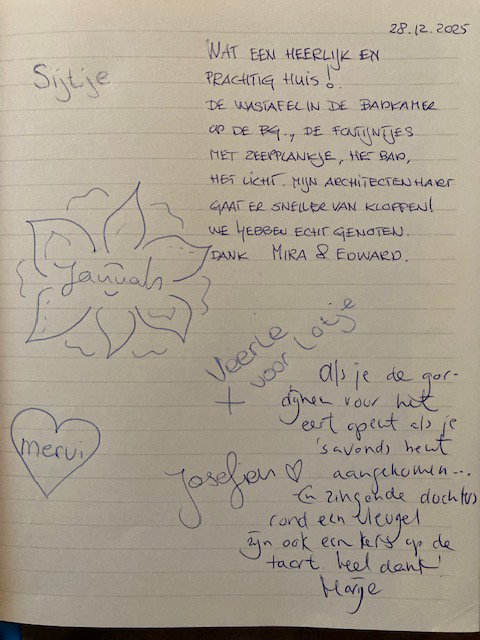 28.12.2025
Sijtje
WAT EEN HEERLIJK EN
PRACHTIG HUIS!
DE WASTAFEL IN DE BADKAMER
OP DE BG., DE FONTIJNTJES
MET ZEEPPLANKJE, HET BAD,
HET LICHT. MIJN ARCHITECTENHART
GAAT ER SNELLER VAN KLOPPEN!
WE HEBBEN ECHT GENOTEN.
DANK MIRA & EDWARD.
Veerle
+ voor Lotje
Als je de gor-
dijnen voor het
eerst opent als je
's avonds bent
aangekomen...
En zingende dochters
rond een vleugel
zijn ook een kers op de
taart. heel dank!
Marije
mervi
Josefien ♡